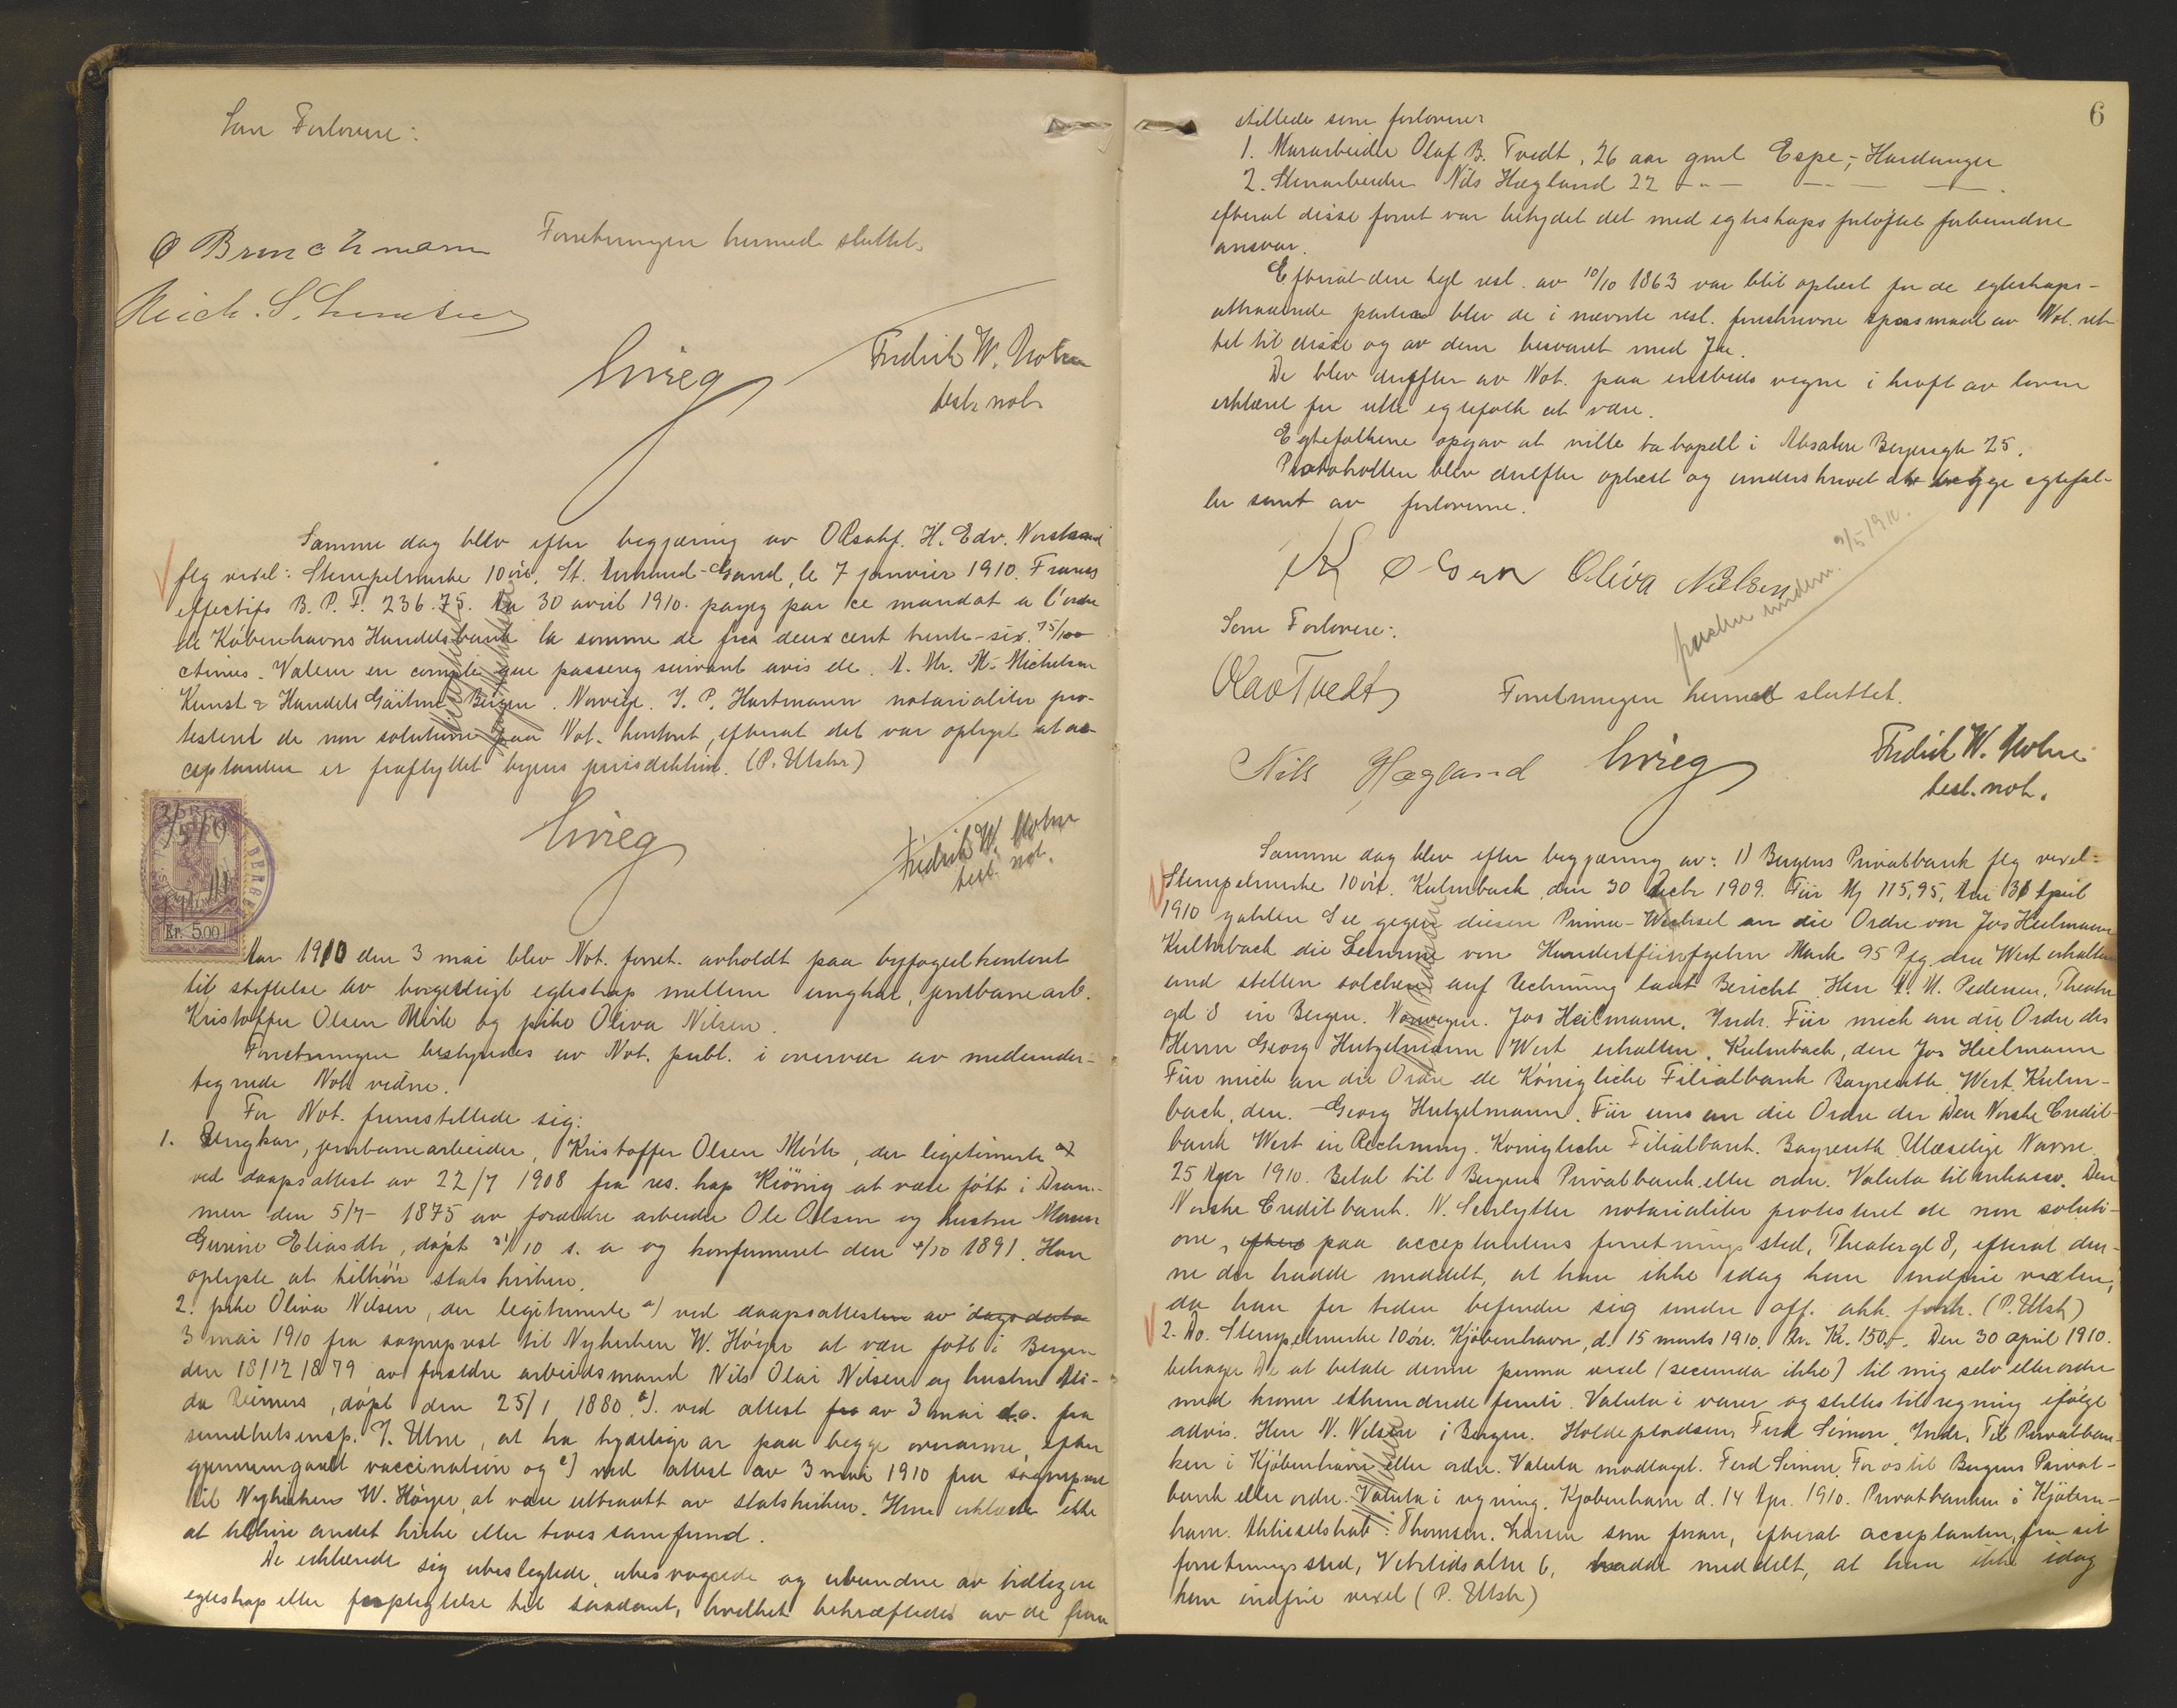 Som Forlovere:
O Brinchmann
Forretningen hermed sluttet.
Grieg
Fredrik W. Holm
best. not.
Samme dag blev efter begjæring av ORsakf. H. Edv. Norstrand
flg vexel: Stempelmerke 10 öre. St. Amand-Gand, le 7 janvier 1910. Francs
effectifs B. P. F. 236.75. Au 30 avril 1910. payez par ce mandat a l'ordre
de Köbenhavns Handelsbank la somme de frcs deux cent trente-six 75/100
ctimes. Valeur en compte que passerez suivant avis de. A. Mr. M. Michelsen
Kunst & Handels Gärtner Bergen. Norvège. J. P. Hartmann notarialiter pro-
testeret de non solutione paa Not. kontoret, efterat det var oplyst at ac-
ceptanten er fraflyttet byens jurisdiktion. (P. Utskr)
Grieg
Fredrik W. Holm
best. not.
3/5/10
Kr. 5.00
Aar 1910 den 3 mai blev Not. forret. avholdt paa byfogedkontoret
til stiftelse av borgerligt egteskap mellem ungkar, jernbanearb.
Kristoffer Olsen Mörk og pike Oliva Nilsen.
Forretningen bestyredes av Not. publ. i overvær av medunder-
tegnede Not. vidne.
For Not. fremstillede sig:
1. Ungkar, jernbanearbeider, Kristoffer Olsen Mörk, der legitimerte a)
ved daapsattest av 22/7 1908 fra res. kap Kiönig at være født i Dram-
men den 5/7 1875 av forældre arbeider Ole Olsen og hustru Maren
Gurine Eliasdtr, döpt 31/10 s. a og konfirmeret den 4/10 1891. Han
oplyste at tilhöre statskirken.
2. pike Oliva Nilsen, der legitimerte a) ved daapsattesten av dags dato
3 mai 1910 fra sogneprest til Nykirken W. Höyer at være født i Bergen
den 18/12 1879 av forældre arbeidsmand Nils Olai Nilsen og hustru Ali-
da Reimers, döpt den 25/1 1880. b). ved attest fra av 3 mai d.a. fra
sundhetsinsp. J. Utne, at ha tydelige ar paa begge overarme efter
gjennemgaaet vaccination og c) ved attest av 3 mai 1910 fra sogneprest
til Nykirken W. Höyer, at være uttraadt av statskirken. Hun erklærte ikke
at tilhöre andet kirke eller troessamfund.
De erklærede sig ubeslegtede, ubesvogrede og ubundne av tidligere
egteskap eller forpligtelse til saadant, hvilket bekræftedes av de frem
6
stillede som forlovere
1. Murarbeider Olaf B. Tvedt, 26 aar gml Espe, Hardanger
2. Stenarbeider Nils Hægland 22 - " - - " - -
efterat disse forut var betydet det med egteskaps forlöftet forbundne
ansvar.
Efterat den kgl resl. av 10/10 1863 var blit oplæst for de egteskaps-
attraaende parter blev de i nævnte resl. foreskrevne spørsmaal av Not. ret-
tet til disse og av dem besvaret med Ja.
De blev derefter av Not. paa embeds vegne i kraft av loven
erklæret for rette egtefolk at være.
Egtefolkene opgav at ville ta bopæll i Absalon Beyersgt 25.
Protokollen blev derefter oplæst og underskrevet av begge egtefol-
ker samt av forloverne.
Oliva Nilsen
presten underr. 9/5 1910.
Som Forlovere:
Olav Tvedt
Forretningen hermed sluttet.
Nils Hægland
Grieg
Fredrik W. Holm
best. not.
Samme dag blev efter begjæring av: 1) Bergens Privatbank flg vexel:
Stempelmerke 10 öre. Kulmbach, den 30 Decbr 1909. Für Mj 115,95, Am 30 April
1910 zahlen Sie gegen diesen Prima-Wechsel an die Ordre von Jos Heilmann
Kulmbach die Summe von Hundertfünfzehn Mark 95 Pfg den Wert erhalten
und stellen solchen auf Rechnung laut Bericht Herr A. M. Pedersen, Theater
gd 8 in Bergen. Norwegen. Jos Heilmann. Indr. Für mich an die Ordre des
Herrn Georg Hutzelmann Wert erhalten. Kulmbach, den Jos Heilmann
Für mich an die Ordre de Königliche Filialbank Bayreuth Wert. Kulm-
bach, den. Georg Hutzelmann. Für uns an die Ordre der Den Norske Credit-
bank Wert in Rechnung. Königliche Filialbank. Bayreuth Ulæselige Navne.
25 Apr 1910. Betal til Bergens Privatbank eller ordre. Valuta til inkasso. Den
Norske Creditbank. N. Schlytter notarialiter protesteret de non soluti-
one, efterat paa acceptantens forretningssted, Theatergt 8, efterat den-
ne der hadde meddelt, at han ikke idag kan indfrie vexlen,
da han for tiden befinder sig under off. akk. forh. (P. Utsk)
2. Do. Stempelmerke 10 öre. Kjøbenhavn, d. 15 marts 1910. Kr. Kr. 150,-. Den 30 april 1910.
behager De at betale denne prima vexel (secunda ikke) til mig selv eller ordre
med kroner ethundrede femti. Valuta i varer og stilles til regning ifølge
advis. Herr N. Nilsen i Bergen. Holdepladsen, Ferd Simon. Indr. Til Privatban-
ken i Kjøbenhavn eller ordre. Valuta modtaget. Ferd Simon. For os til Bergens Privat-
bank eller ordre. Valuta i regning. Kjøbenhavn d. 14 Apr. 1910. Privatbanken i Kjøben-
havn. Aktieselskab: Thomsen. Larsen som foran, efterat acceptanten, fra sit
forretningssted, Vetrlidsalm 6, hadde meddelt, at han ikke idag
kan indfrie vexel (P. Utsk)